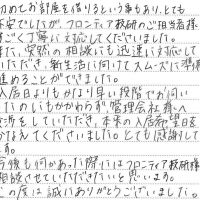 初めてお部屋を借りるという事もあり、とても
不安でしたが、フロンティア技研のご担当者様
すごく丁寧に対応してくださいました。
また、突然の相談にも迅速に対応して
いただき、新生活に向けてスムーズに準備
進めることができました。
入居日よりもかなり早い段階でお伺い
したのにもかかわらず、管理会社様へ
交渉をしていただき、本来の入居希望日を
かなえてくださいました。とても感謝して
ます。
今後も何かあった際にはフロンティア技研様
相談させていただきたいと思います。
この度は誠にありがとうございました。